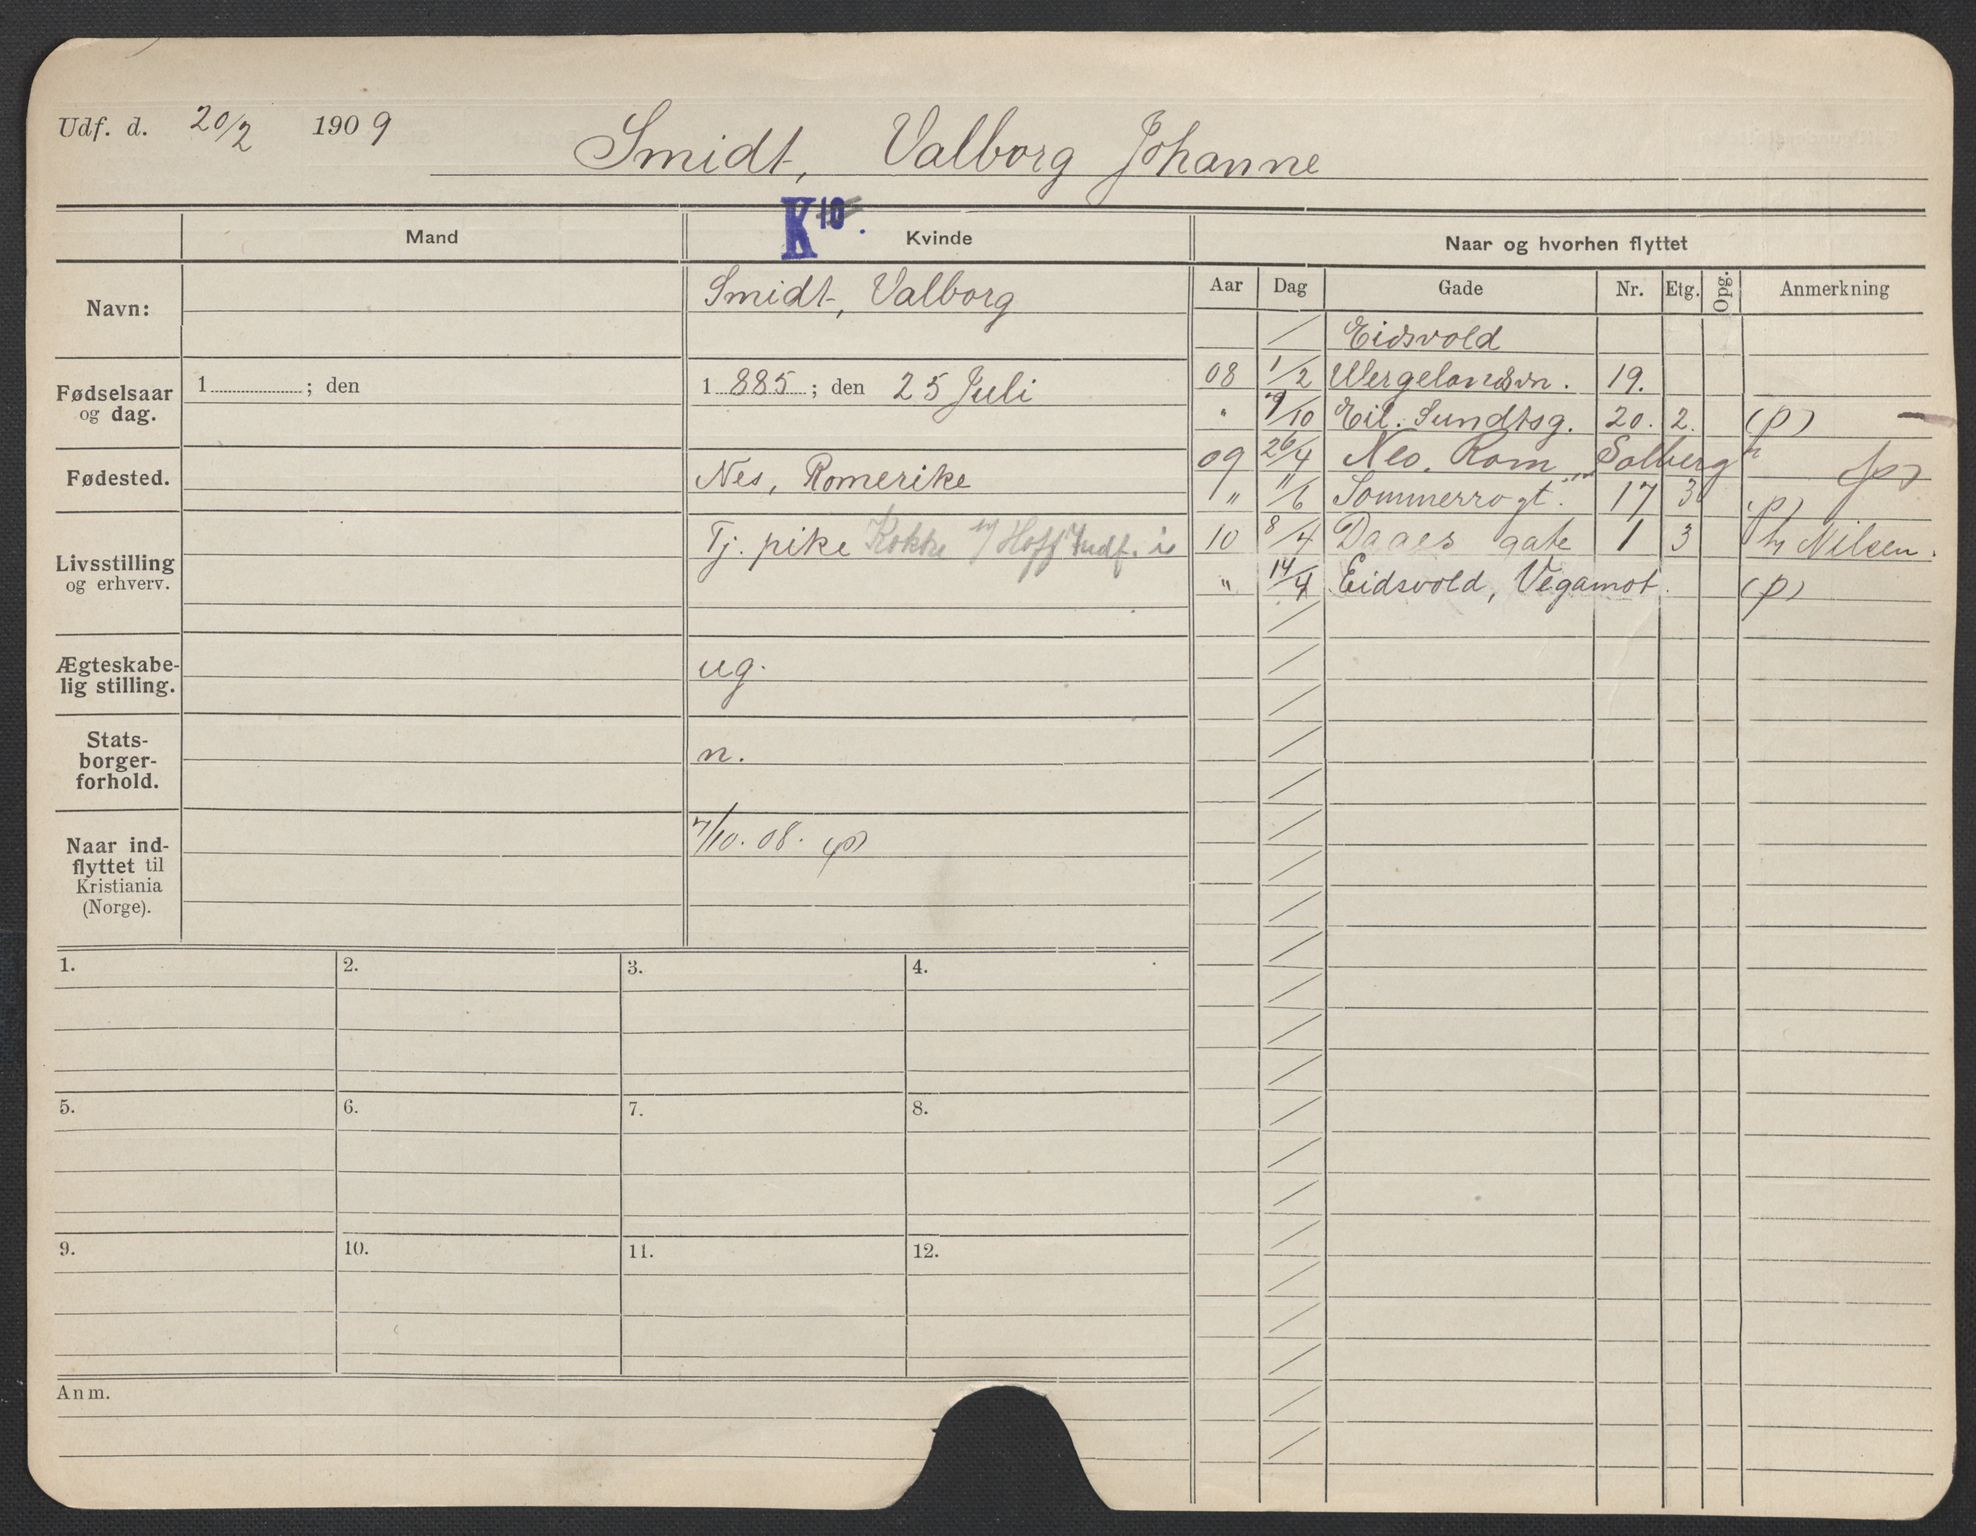 Udf. d. 20/2 1909
Smidt, Valborg Johanne
K 10.
Mand
Kvinde
Naar og hvorhen flyttet
Navn:
Smidt, Valborg
Fødselsaar og dag.
1 ; den
1 885 ; den 25 Juli
Fødested.
Nes, Romerike
Livsstilling og erhverv.
Tj. pike Kokke v/ Hoff Indf. i
Ægteskabe-
lig stilling.
ug.
Stats-
borger-
forhold.
n.
Naar ind-
flyttet til
Kristiania
(Norge).
7/10. 08. (p)
Aar Dag Gade Nr. Etg. Opg. Anmerkning
/ Eidsvold
08 1/2 Wergelandsvn. 19.
" 7/10 Eil. Sundtsg. 20. 2. (p)
09 26/4 Neo. Rom, Solberg (p)
" "/6 Sommerrogt. 17 3 (p)
10 8/4 Daaes gate 1 3 h/ Nilsen.
" 14/4 Eidsvold, Vegamot. (p)
1. 2. 3. 4.
5. 6. 7. 8.
9. 10. 11. 12.
Anm.